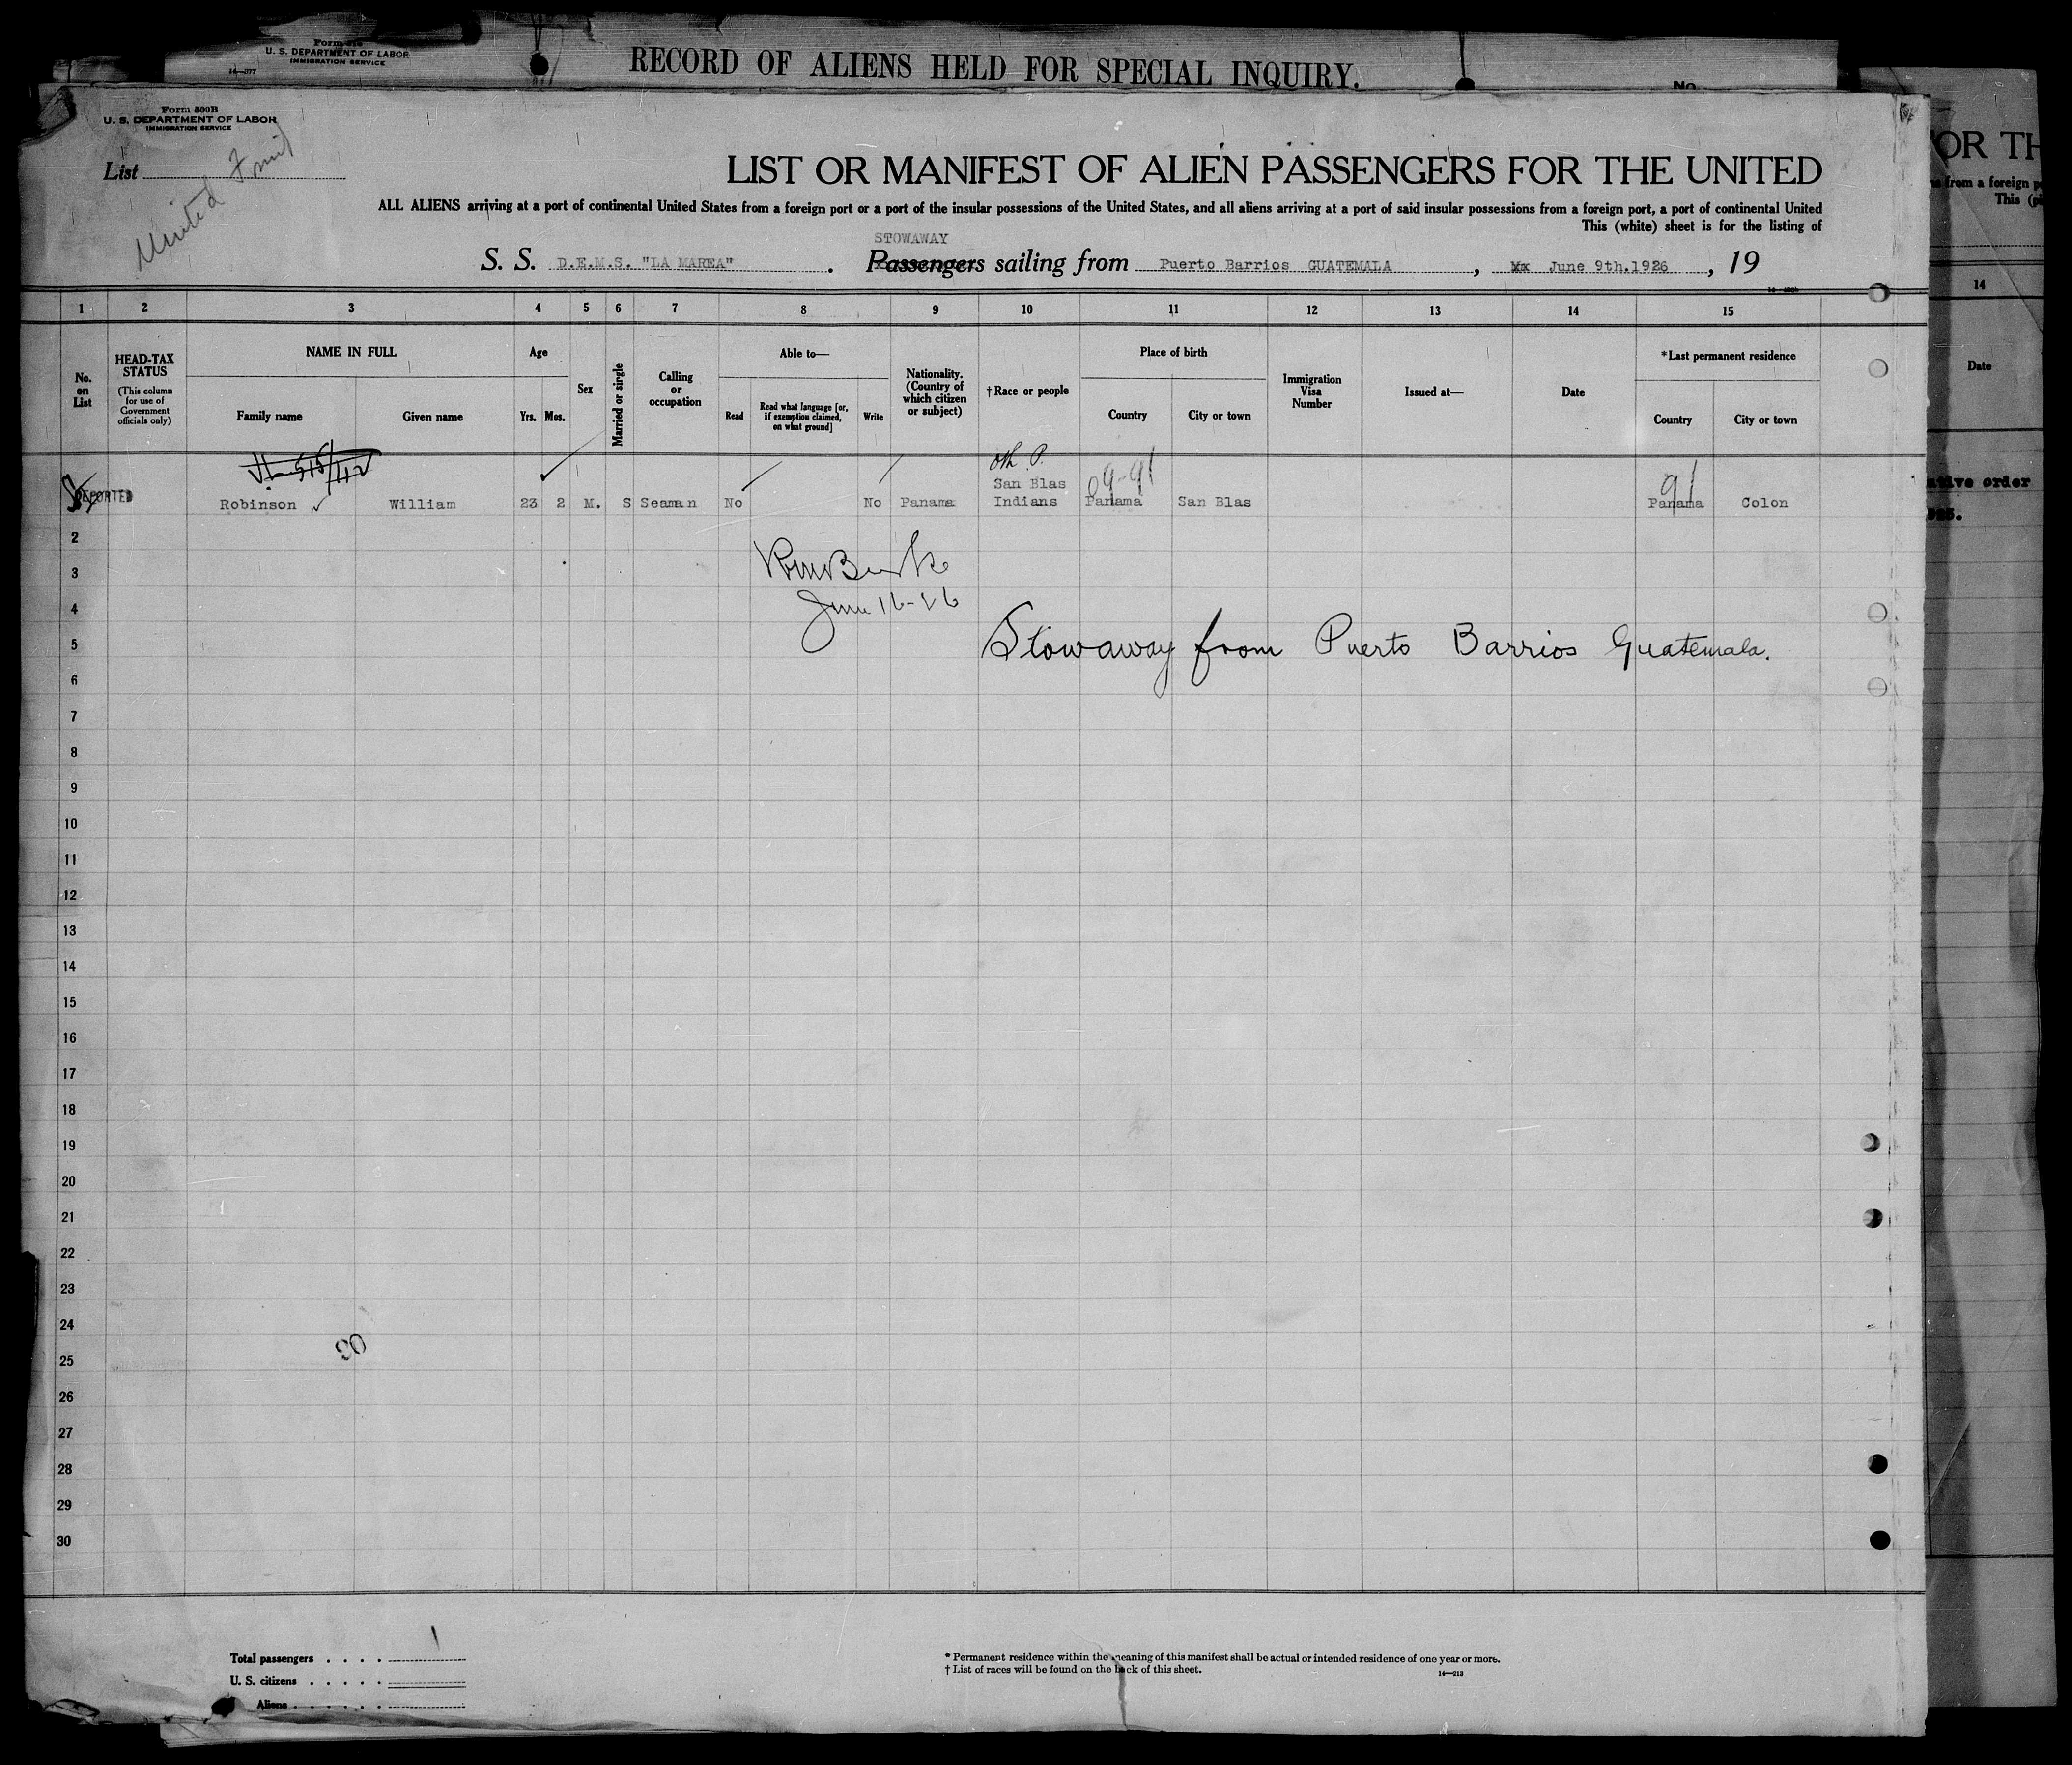 Form 616
U. S. DEPARTMENT OF LABOR
IMMIGRATION SERVICE
RECORD OF ALIENS HELD FOR SPECIAL INQUIRY.
No.
Form 500B
U. S. DEPARTMENT OF LABOR
IMMIGRATION SERVICE
List
United Fruit
LIST OR MANIFEST OF ALIEN PASSENGERS FOR THE UNITED
ALL ALIENS arriving at a port of continental United States from a foreign port or a port of the insular possessions of the United States, and all aliens arriving at a port of said insular possessions from a foreign port, a port of continental United
This (white) sheet is for the listing of
STOWAWAY
S. S. D.E.M.S. "LA MAREA" . Passengers sailing from Puerto Barrios GUATEMALA , June 9th.1926 , 19
1 2 3 4 5 6 7 8 9 10 11 12 13 14 15
No. on List
HEAD-TAX STATUS
(This column for use of Government officials only)
NAME IN FULL
Family name Given name
Age
Yrs. Mos.
Sex
Married or single
Calling or occupation
Able to—
Read
Read what language [or, if exemption claimed, on what ground]
Write
Nationality. (Country of which citizen or subject)
†Race or people
Place of birth
Country City or town
Immigration Visa Number
Issued at—
Date
*Last permanent residence
Country City or town
Oth. P. 09-91 91
DEPORTED Robinson William 23 2 M. S Seaman No No Panama San Blas Indians Panama San Blas Panama Colon
2
3
June 16-26
4
5 Stowaway from Puerto Barrios Guatemala.
6
7
8
9
10
11
12
13
14
15
16
17
18
19
20
21
22
23
24
25
26
27
28
29
30
Total passengers . . . . 1
U. S. citizens . . . . .
Aliens . . . . . .
* Permanent residence within the meaning of this manifest shall be actual or intended residence of one year or more.
† List of races will be found on the back of this sheet.
14—213
OR TH
from a foreign
This
14
Date
order